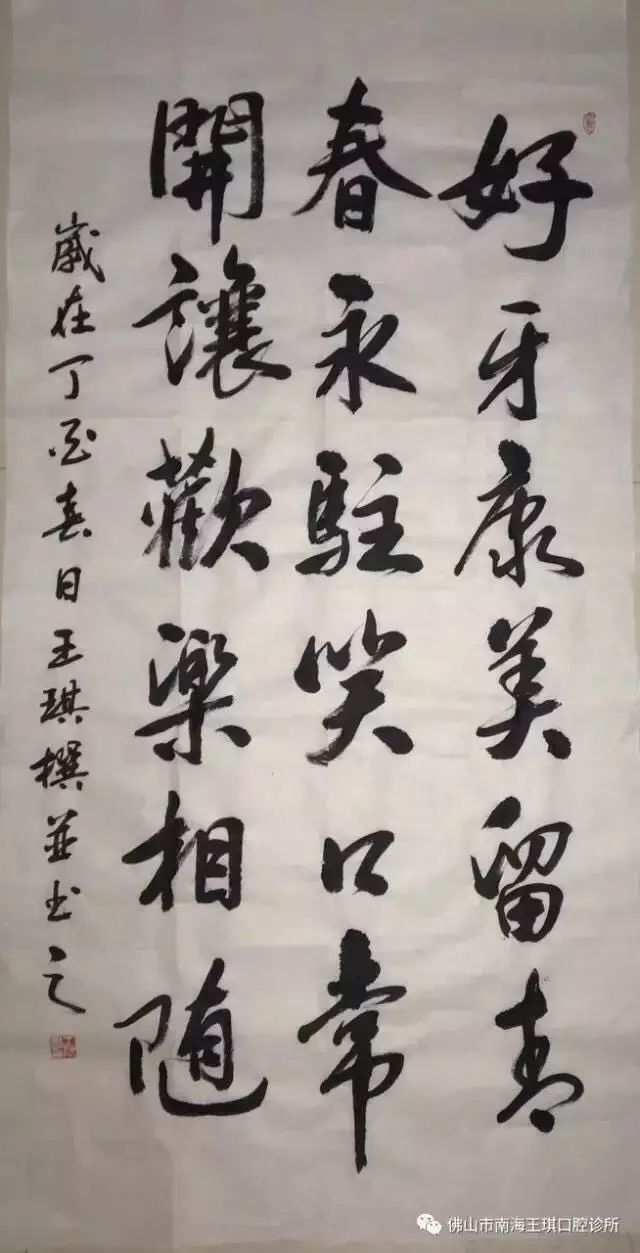 好牙康美留青
春永駐笑口常
開讓歡樂相随
歲在丁酉春日王琪撰並书之
佛山市南海王琪口腔诊所